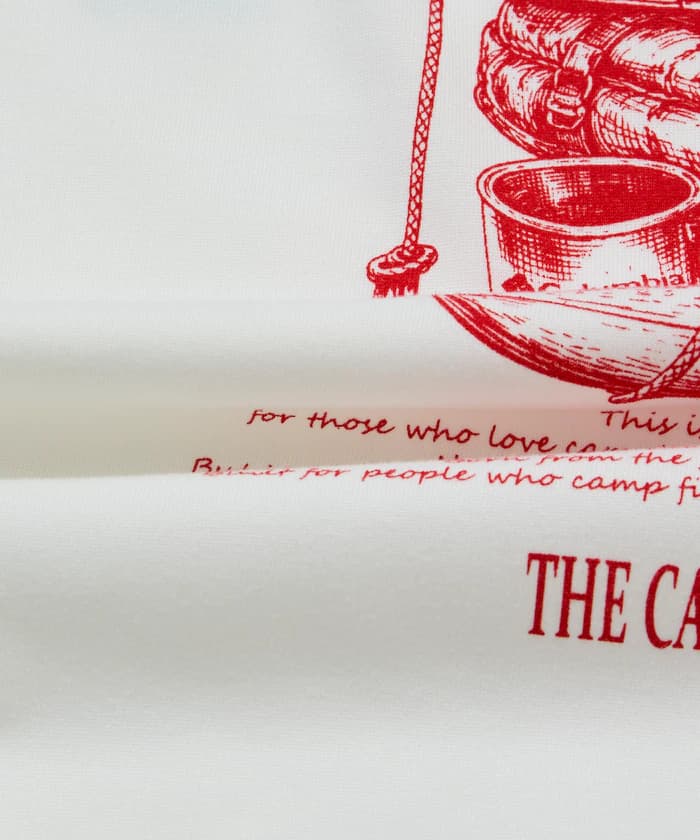 Columbia
This i
for those who love
from the
for people who camp fi
THE CA